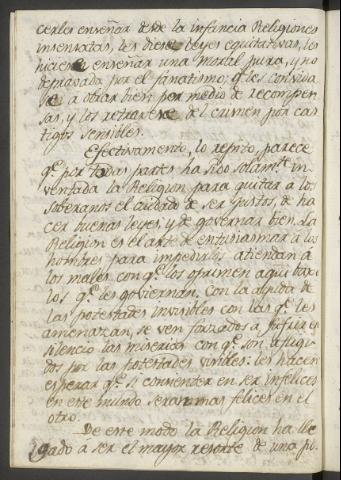 cerles enseñar desde la infancia Religiones
insensatas, les diese leyes equitativas, les
hiciese enseñar una moral pura, y no
depravada por el fanatismo; q.e les convida
se a obrar bien por medio de recompen
sas, y los retraxese del crimen por cas
tigos sensibles.
Efectivamente, lo repito, parece
q.e por todas partes ha sido solam.te in
ventada la Religion para quitar á los
soberanos el cuidado de ser justos, de ha
cer buenas leyes, y de governar bien. La
Religion es el arte de entusiasmar á los
hombres para impedirles atiendan á
los males con q.e los oprimen aqui bax
los q.e les goviernan. Con la ayuda de
las potestades invisibles con las q.e les
amenazan, se ven forzados á sufrir en
silencio las miserias con q.e son afligi
dos por las potestades visibles: les hacen
esperar q.e si convienen en ser infelices
en este mundo seran mas felices en el
otro.
De este modo la Religion ha lle
gado á ser el mayor resorte de una po